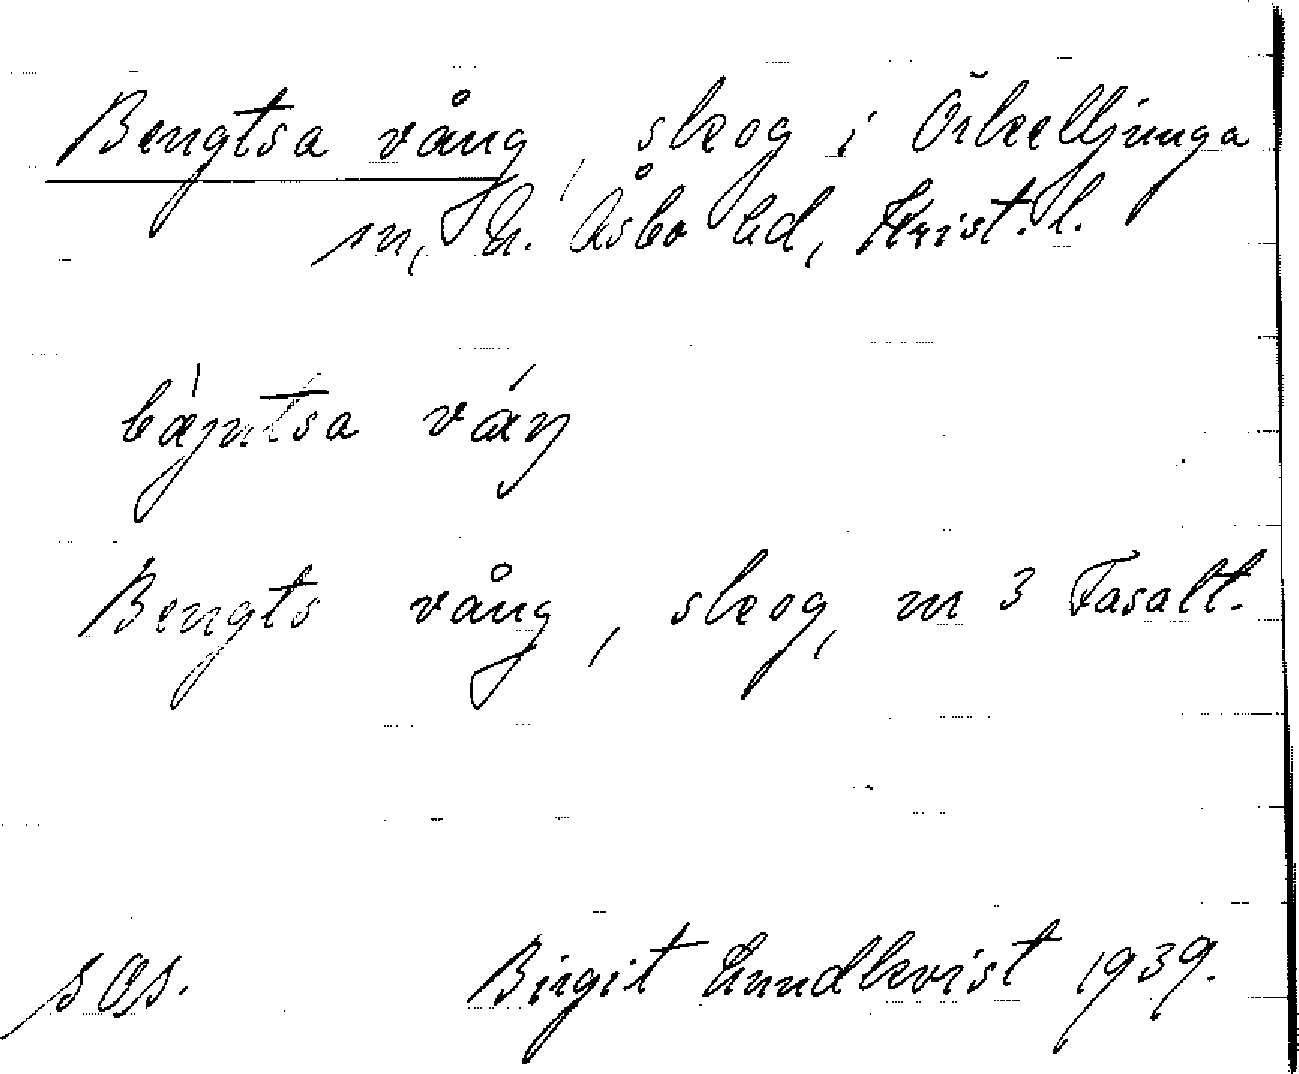 Bengtsa vång, skog i Örkelljunga
sn, N. Åsbo hd, Krist. l.
bájntsa váŋ
Bengts vång, skog, m 3 Fasalt.
sOs. Birgit Lundkvist 1939.